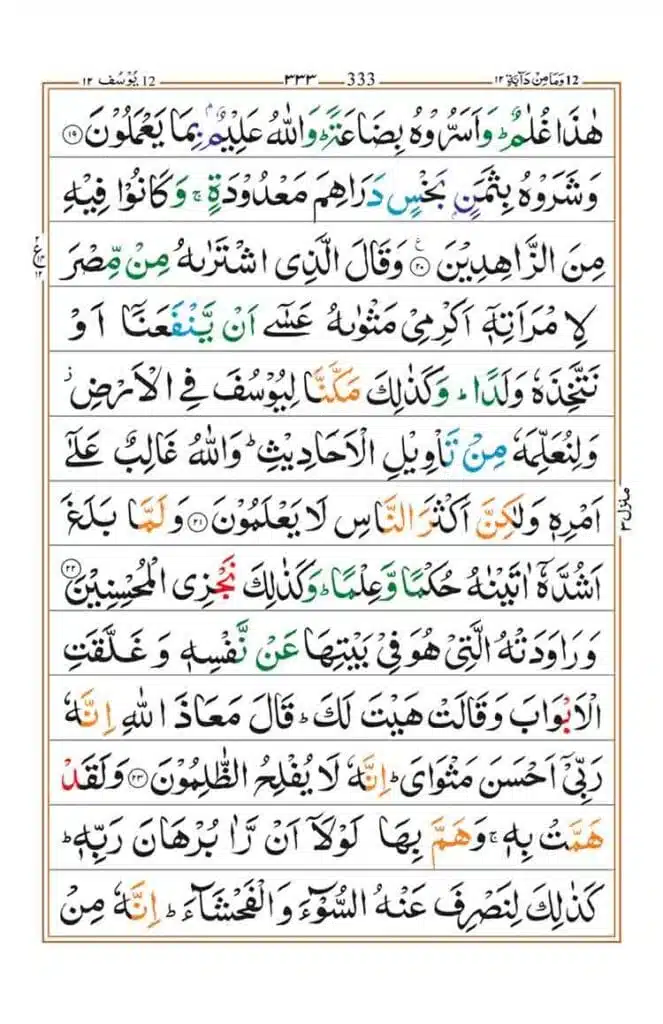 12 وَمَا مِنْ دَآبَّةٍ ١٢
333 ٣٣٣
12 يُوْسُف ١٢
هٰذَا غُلٰمٌ ؕ وَاَسَرُّوْهُ بِضَاعَةً ؕ وَاللّٰهُ عَلِيْمٌۢ بِمَا يَعْمَلُوْنَ ﴿۱۹﴾
وَشَرَوْهُ بِثَمَنٍۭ بَخْسٍ دَرَاهِمَ مَعْدُوْدَةٍ ۚ وَكَانُوْا فِيْهِ
مِنَ الزَّاهِدِيْنَ ﴿۲۰﴾ وَقَالَ الَّذِى اشْتَرٰىهُ مِنْ مِّصْرَ
لِامْرَاَتِهٖۤ اَكْرِمِىْ مَثْوٰىهُ عَسٰٓى اَنْ يَّنْفَعَنَاۤ اَوْ
نَتَّخِذَهٗ وَلَدًا ؕ وَكَذٰلِكَ مَكَّنَّا لِيُوْسُفَ فِى الْاَرْضِ ز
وَلِنُعَلِّمَهٗ مِنْ تَاْوِيْلِ الْاَحَادِيْثِ ؕ وَاللّٰهُ غَالِبٌ عَلٰٓى
اَمْرِهٖ وَلٰكِنَّ اَكْثَرَ النَّاسِ لَا يَعْلَمُوْنَ ﴿۲۱﴾ وَلَمَّا بَلَغَ
اَشُدَّهٗۤ اٰتَيْنٰهُ حُكْمًا وَّعِلْمًا ؕ وَكَذٰلِكَ نَجْزِى الْمُحْسِنِيْنَ ﴿۲۲﴾
وَرَاوَدَتْهُ الَّتِىْ هُوَ فِىْ بَيْتِهَا عَنْ نَّفْسِهٖ وَغَلَّقَتِ
الْاَبْوَابَ وَقَالَتْ هَيْتَ لَكَ ؕ قَالَ مَعَاذَ اللّٰهِ اِنَّهٗ
رَبِّىْۤ اَحْسَنَ مَثْوَاىَ ؕ اِنَّهٗ لَا يُفْلِحُ الظّٰلِمُوْنَ ﴿۲۳﴾ وَلَقَدْ
هَمَّتْ بِهٖ ۚ وَهَمَّ بِهَا لَوْلَاۤ اَنْ رَّاٰ بُرْهَانَ رَبِّهٖ ؕ
كَذٰلِكَ لِنَصْرِفَ عَنْهُ السُّوْٓءَ وَالْفَحْشَآءَ ؕ اِنَّهٗ مِنْ
ع
منزل ۳